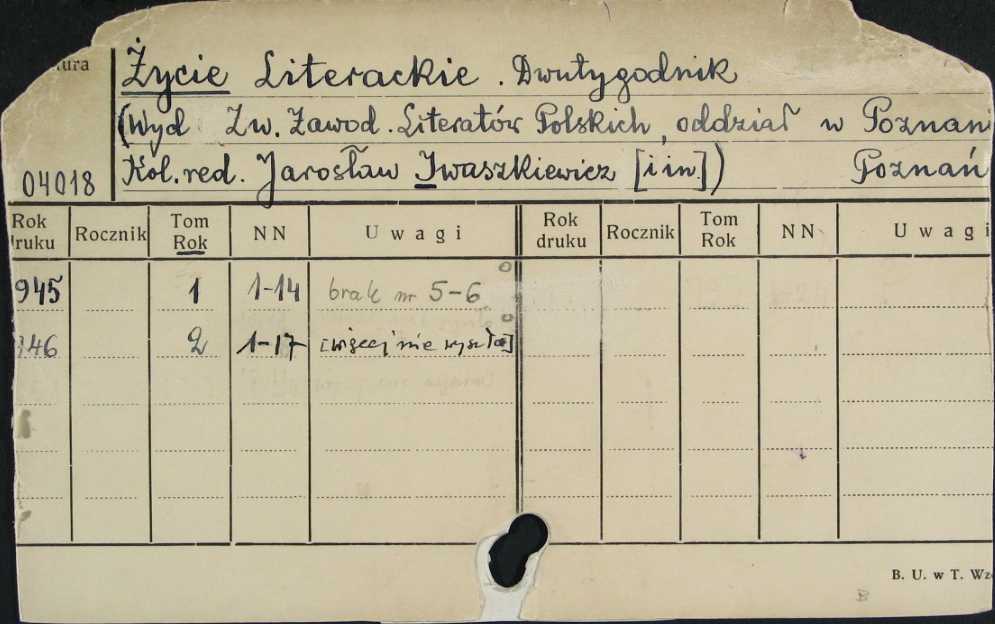 ura
Życie Literackie. Dwutygodnik
(Wyd Zw. Zawod. Literatów Polskich, oddział w Poznan
04018 Kol. red. Jarosław Iwaszkiewicz [i in.]) Poznań
Rok druku Rocznik Tom Rok NN Uwagi Rok druku Rocznik Tom Rok NN Uwagi
945 1 1-14 brak nr 5-6
946 2 1-17 [więcej nie wyszło]
B. U. w T. Wz
B